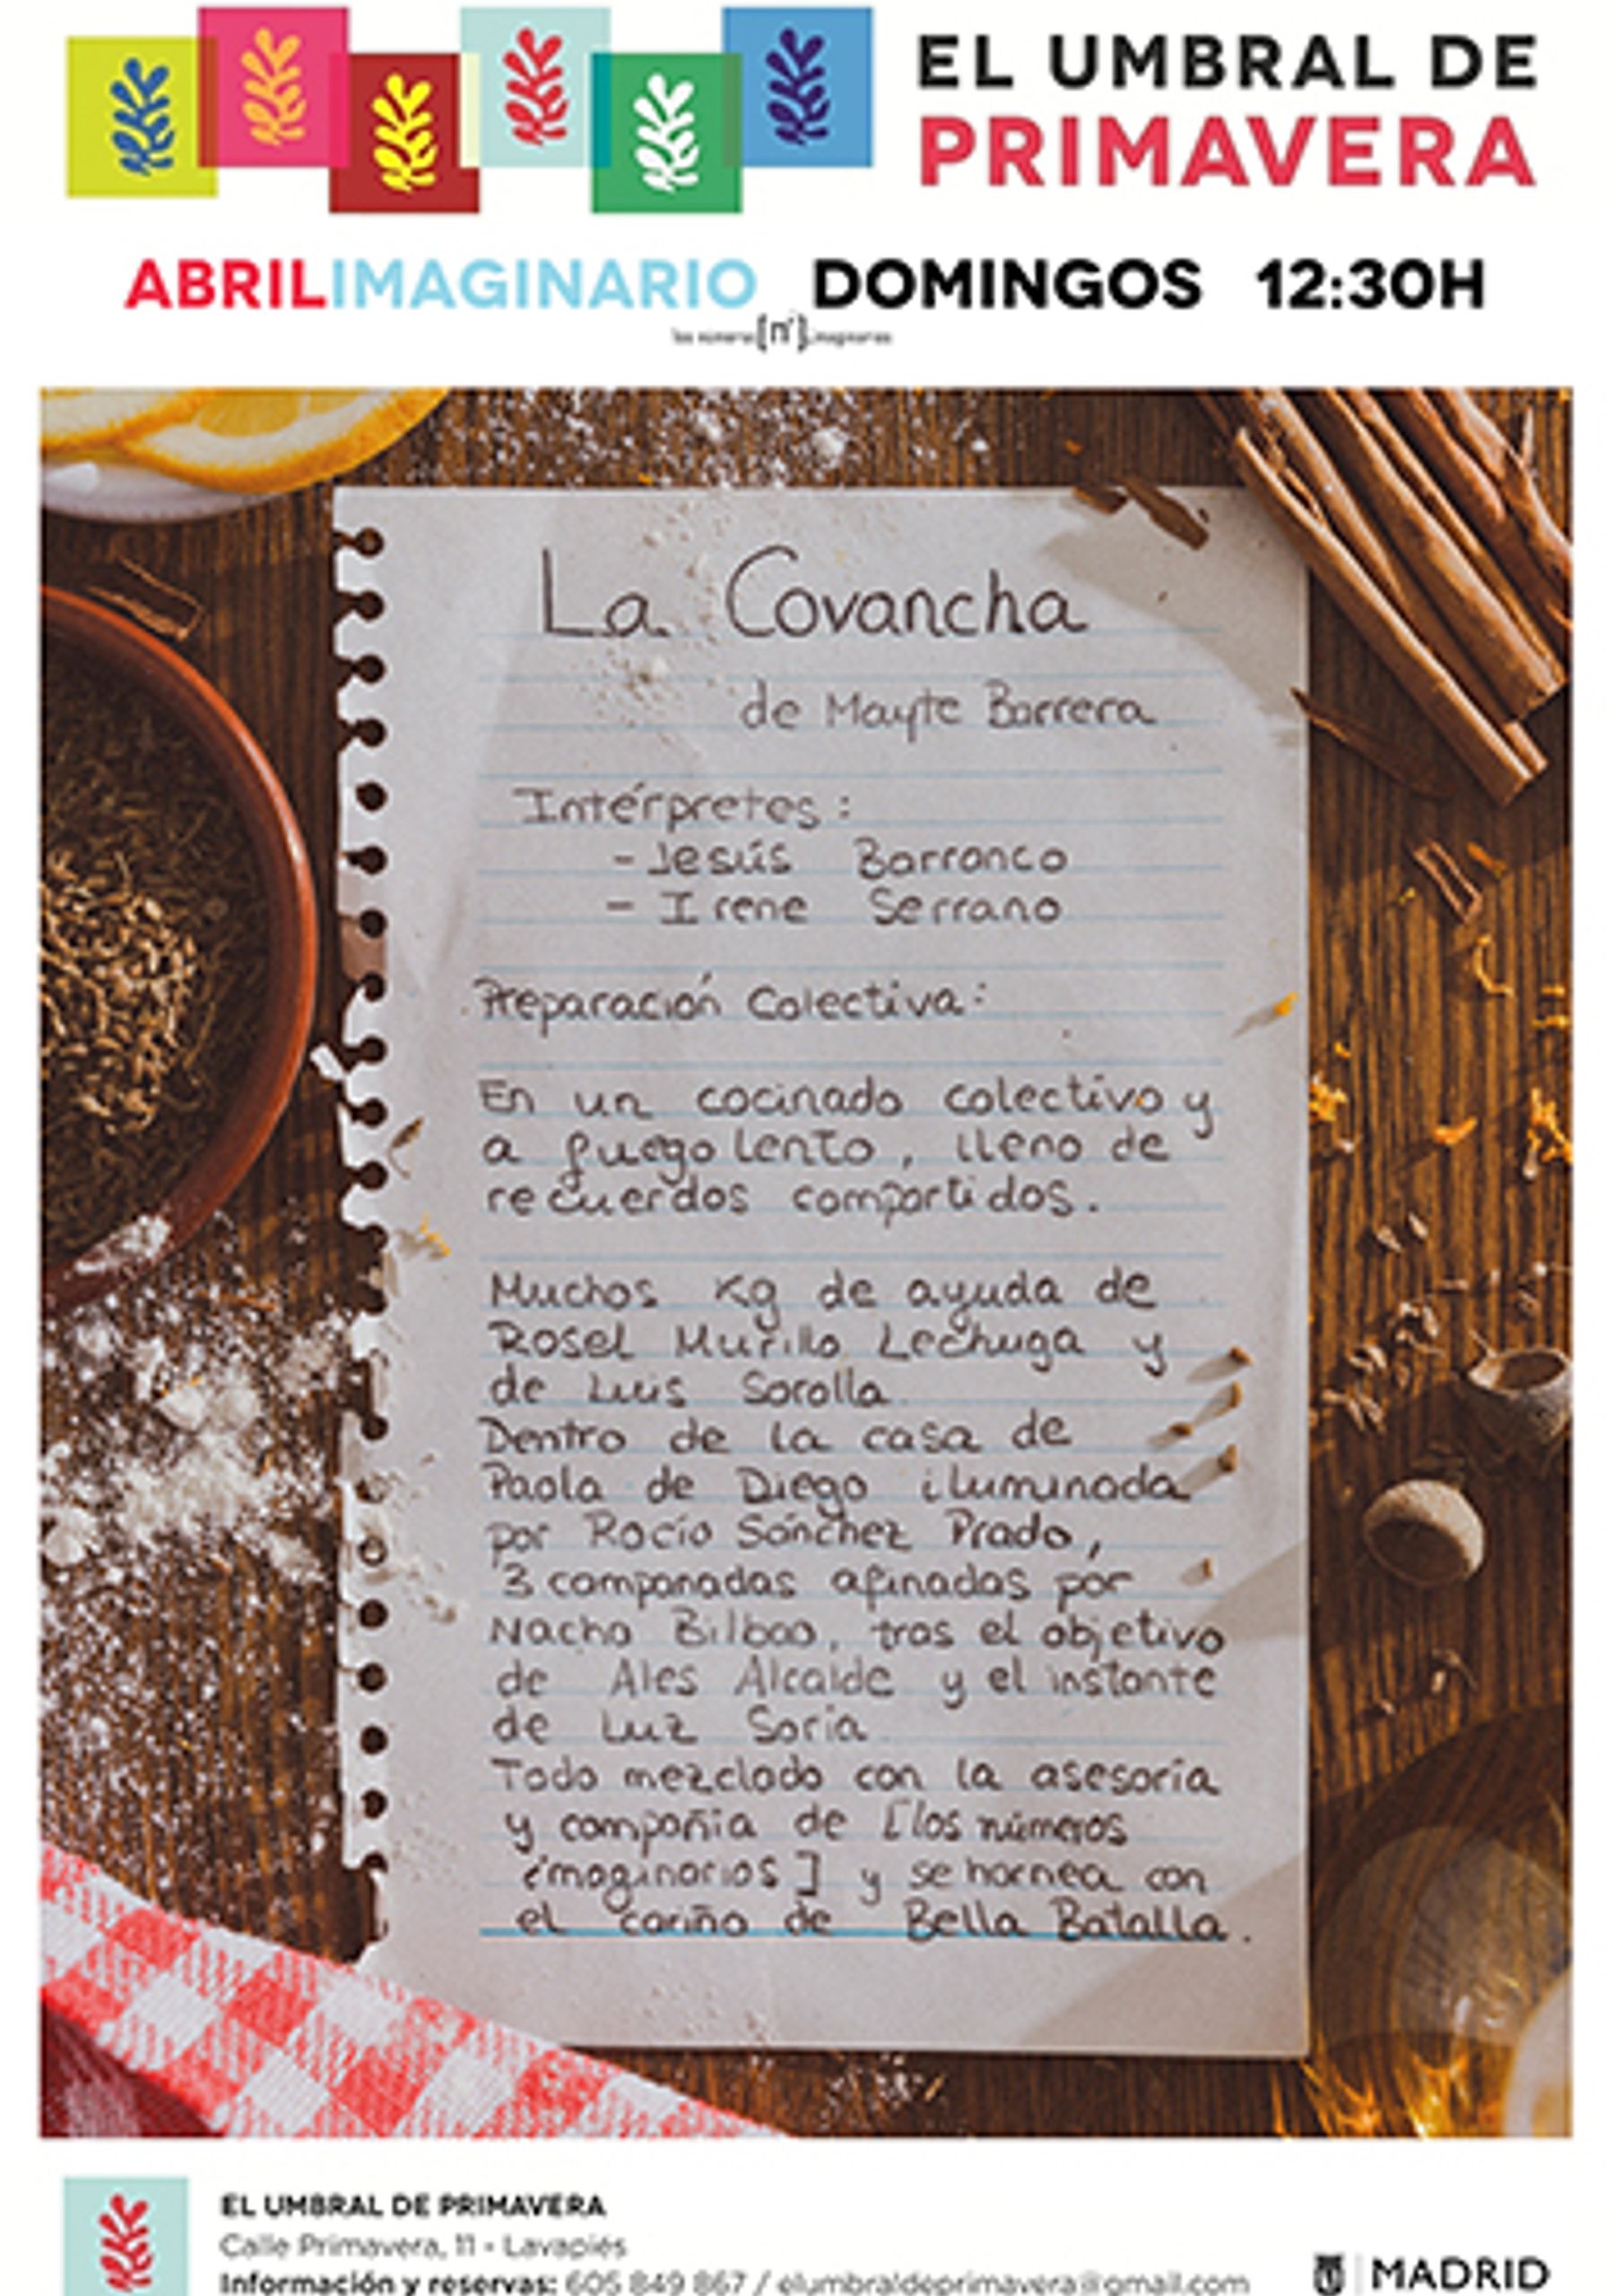 EL UMBRAL DE
PRIMAVERA
ABRILIMAGINARIO DOMINGOS 12:30H
los números [n'] imaginarios
La Covancha
de Mayte Barrera
Intérpretes:
- Jesús Barranco
- Irene Serrano
Preparación Colectiva:
En un cocinado colectivo y
a fuego lento, lleno de
recuerdos compartidos.
Muchos Kg de ayuda de
Rosel Murillo Lechuga y
de Luis Sorolla
Dentro de la casa de
Paola de Diego iluminada
por Rocío Sánchez Prado,
3 campanadas afinadas por
Nacho Bilbao, tras el objetivo
de Ales Alcalde y el instante
de Luz Soria
Todo mezclado con la asesoría
y compañía de [los números
imaginarios] y se hornea con
el cariño de Bella Batalla.
EL UMBRAL DE PRIMAVERA
Calle Primavera, 11 - Lavapiés
Información y reservas: 605 849 867 / elumbraldeprimavera@gmail.com
MADRID